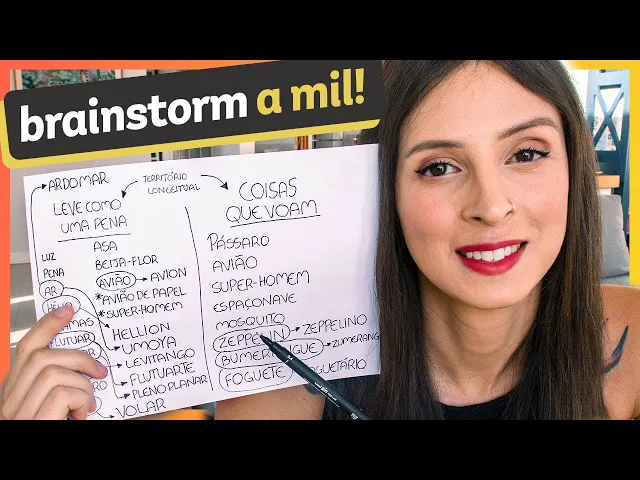 brainstorm a mil!
ARDOMAR
TERRITÓRIO
CONCEITUAL
LEVE COMO
UMA PENA
LUZ
PENA
AR
ASA
BEIJA-FLOR
AVIÃO → AVION
*AVIÃO DE PAPEL
*SUPER-HOMEM
HELLION
UMOYA
LEVITANGO
FLUTUARTE
PLENO PLANAR
VOLAR
COISAS
QUE VOAM
PÁSSARO
AVIÃO
SUPER-HOMEM
ESPAÇONAVE
MOSQUITO
ZEPPELIN → ZEPPELINO
ZUMERANG
FOGUETE